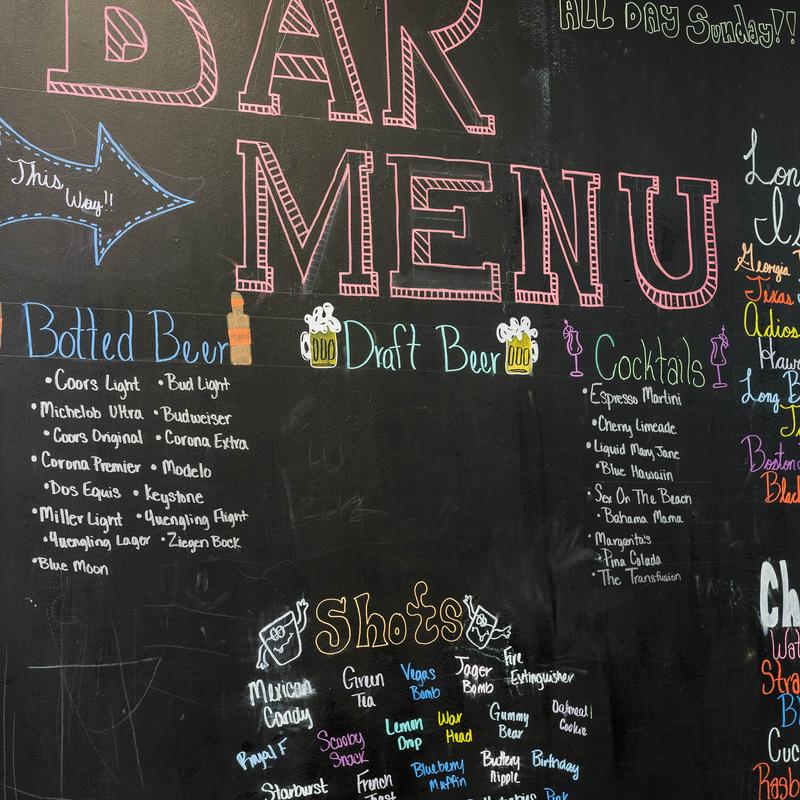 BAR
MENU
ALL DAY Sunday!!
This
Way!!
Botted Beer
• Coors Light • Bud Light
• Michelob Ultra • Budweiser
• Coors Original • Corona Extra
• Corona Premier • Modelo
• Dos Equis • Keystone
• Miller Light • Yuengling Flight
• Yuengling Lager • Ziegen Bock
• Blue Moon
Draft Beer
Cocktails
• Espresso Martini
• Cherry Limeade
• Liquid Mary Jane
• Blue Hawaiin
• Sex On The Beach
• Bahama Mama
• Margarita's
• Pina Colada
• The Transfusion
Shots
Mexican
Candy
Green
Tea
Vegas
Bomb
Jager
Bomb
Fire
Extinguisher
Royal F
Scooby
Snack
Lemon
Drop
War
Head
Gummy
Bear
Oatmeal
Cookie
Starburst
French
Blueberry
Muffin
Buttery
Nipple
Birthday
Pink
Georgia
Texas
Adios
Long
Boston